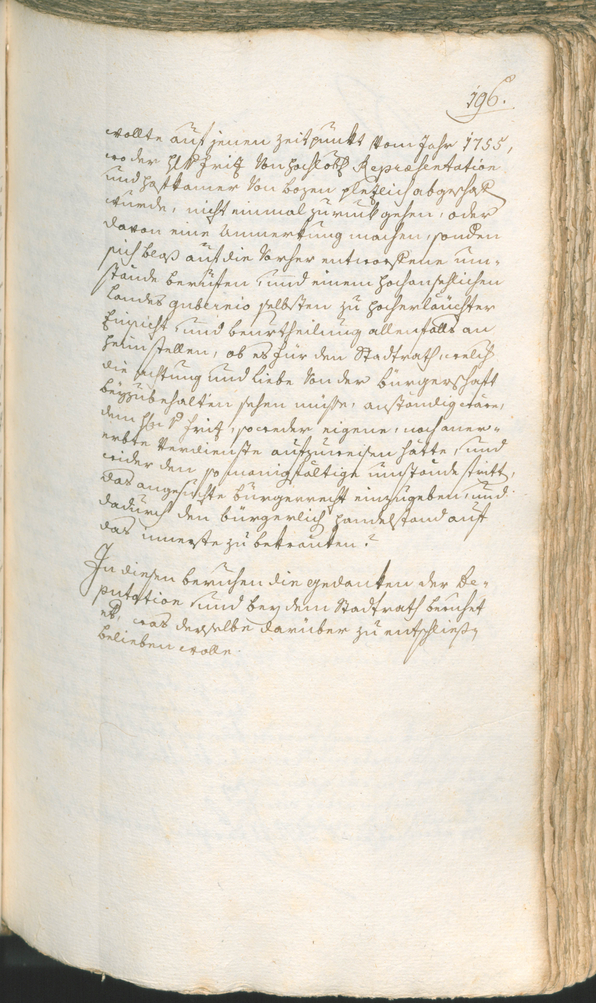 196.
wollte auf jenen Zeitpunkt vom Jahr 1755,
wo der H. Fritz von hochlöbl. Repræsentation
und Hofkamer von bozen plezlich abgeschaft
wurde, nicht einmal zurukgehen, oder
davon eine Anmerkung machen, sonden
sich blos auf die vorher entworfene um-
stände berufen, und einem hochansehlichen
Landes gubernio selbsten zu hocherläuchter
Einsicht, und beurtheilung allenfalls an
heimstellen, ob es für den Stadtrath, welch
die achtung und liebe von der bürgerschaft
beyzubehalten sehen müsse, anständig wäre,
dem H. Fritz, so weder eigene, noch aner-
erbte Verdienste aufzuweisen hätte, und
wider den so manigfältige umstände stritte,
das angesuchte bürgerrecht einzugeben, und
dadurch den bürgerlich handelstand auf
das innerste zu betrauren?
In diesen beruhen die gedanken der De-
putation, und bey dem Stadtrath beruhet
es, was derselbe darüber zu entschließen
belieben wolle.